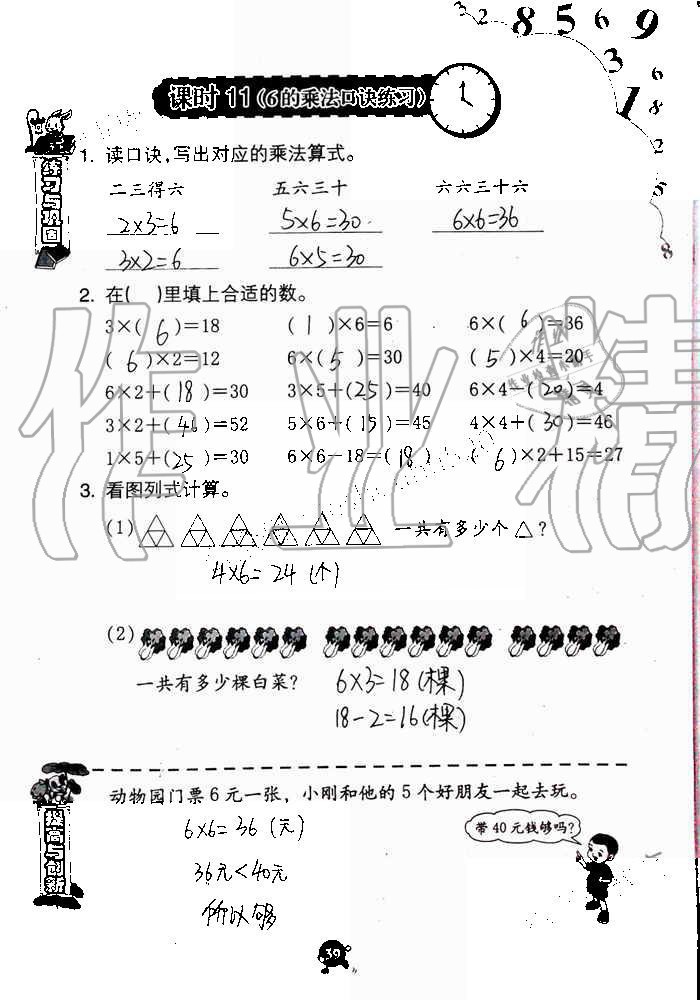 3 2 8 5 6 9
3 1 6 8 2 5 8
课时 11（6的乘法口诀练习）
练习与巩固
1. 读口诀,写出对应的乘法算式。
二三得六 五六三十 六六三十六
2×3=6 5×6=30 6×6=36
3×2=6 6×5=30
2. 在( )里填上合适的数。
3×(6)=18 (1)×6=6 6×(6)=36
(6)×2=12 6×(5)=30 (5)×4=20
6×2+(18)=30 3×5+(25)=40 6×4-(20)=4
3×2+(46)=52 5×6+(15)=45 4×4+(30)=46
1×5+(25)=30 6×6-18=(18) (6)×2+15=27
3. 看图列式计算。
(1) 一共有多少个△?
4×6=24(个)
(2)
一共有多少棵白菜? 6×3=18(棵)
18-2=16(棵)
提高与创新
动物园门票6元一张，小刚和他的5个好朋友一起去玩。
6×6=36(元)
带40元钱够吗?
36元<40元
所以够
39
作业精